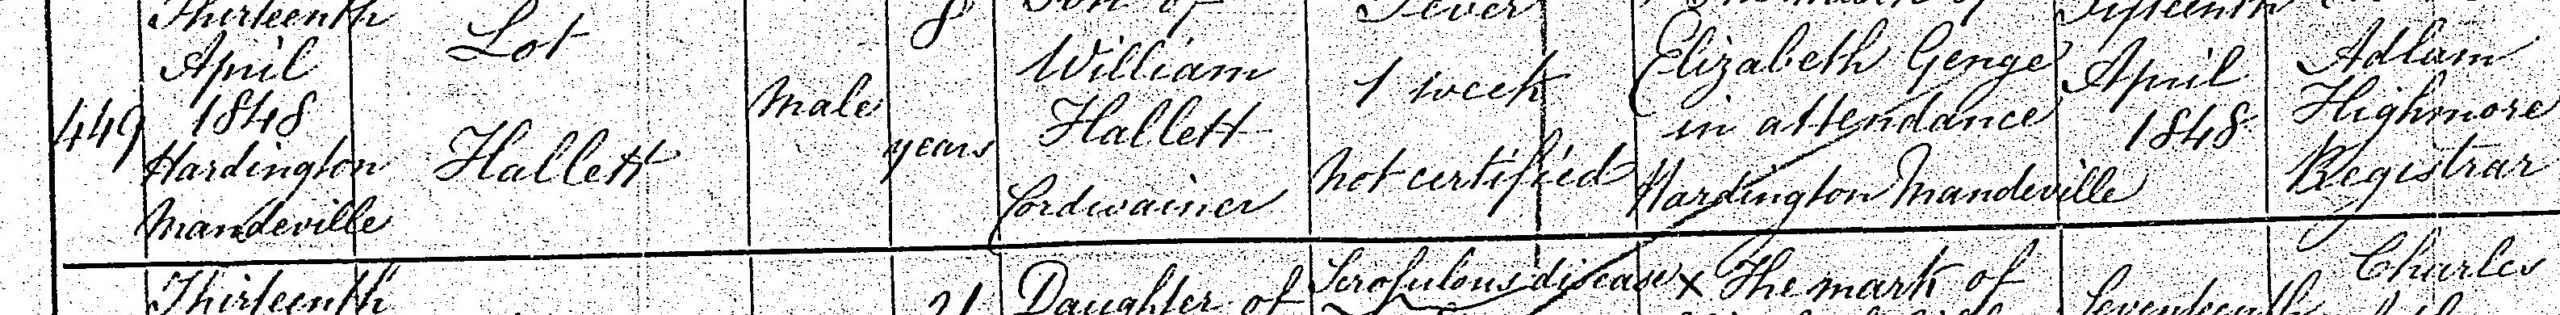 449
Thirteenth
April
1848
Hardington
Mandeville
Lot
Hallett
Male
8
years
Son of
William
Hallett
Cordwainer
Fever
1 week
Not certified
The mark of
Elizabeth Genge
in attendance
Hardington Mandeville
Fifteenth
April
1848
Adlam
Highmore
Registrar
Thirteenth
21
Daughter of
Scrofulous disease
X The mark of
Seventeenth
Charles